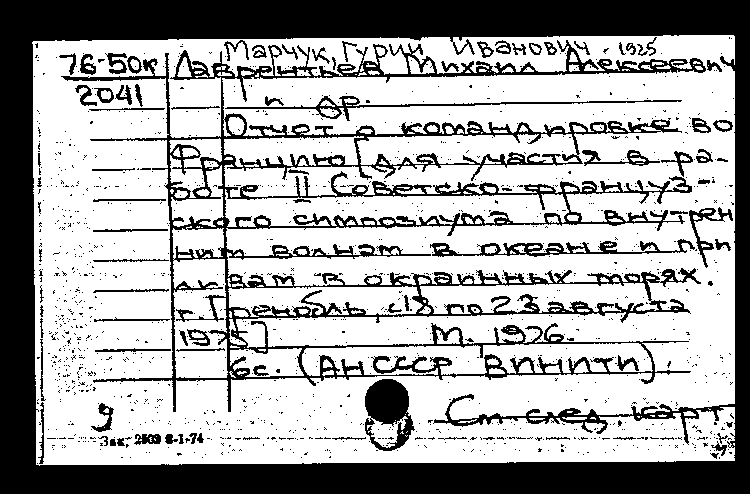 Марчук, Гурий Иванович. 1925
76-50к Лаврентьев, Михаил Алексеевич
2041
и др.
Отчет о командировке во
Францию [для участия в ра-
боте II Советско-француз-
ского симпозиума по внутрен
ним волнам в океане и при
ливам в окраинных морях.
г. Гренобль, с 18 по 23 августа
1975] М., 1976.
6с. (АН СССР ВИНИТИ).
9 См. след. карт
Зак. 2503 8-1-74